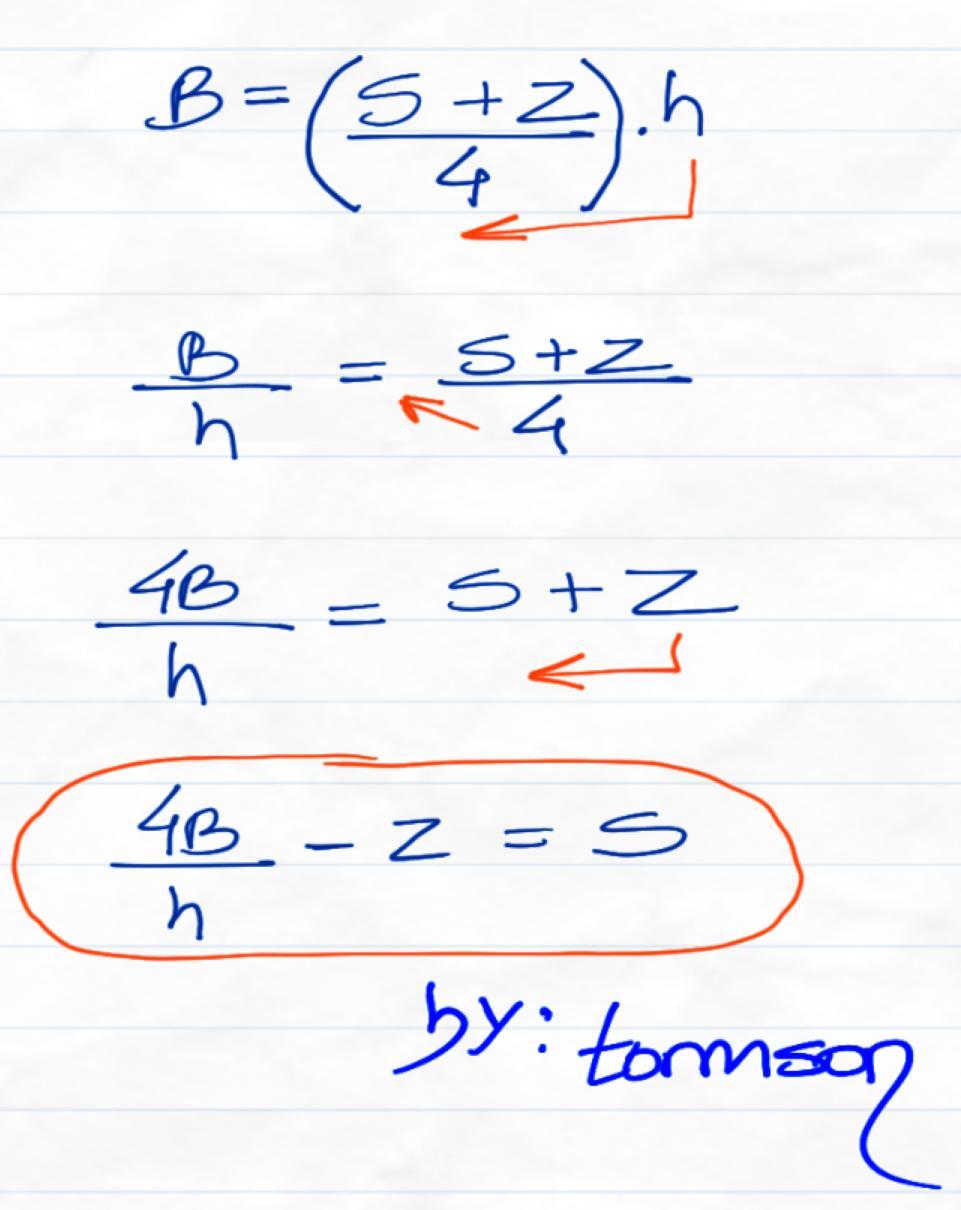 B = (S + Z / 4) . h
B / h = S + Z / 4
4B / h = S + Z
4B / h - Z = S
by: tormson